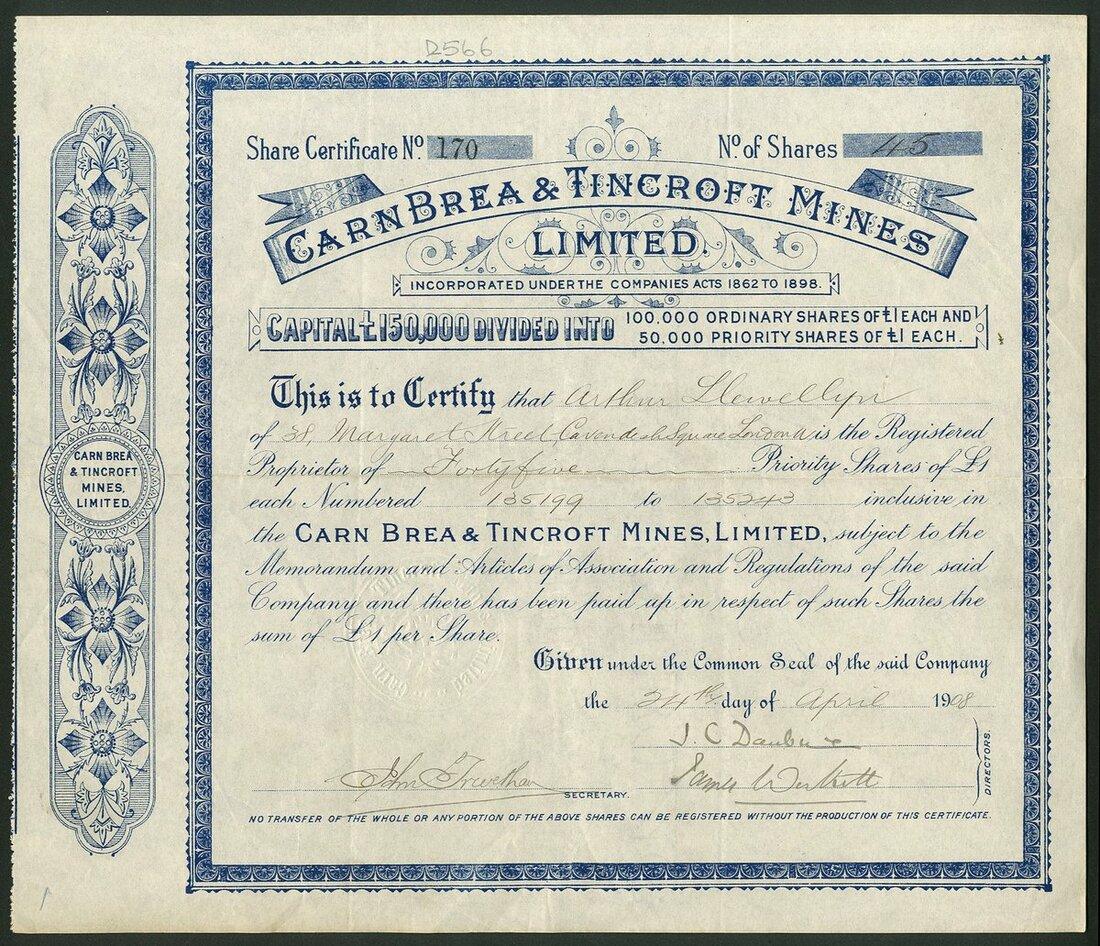 R566
Share Certificate No. 170
No. of Shares 45
CARN BREA & TINCROFT MINES
LIMITED.
INCORPORATED UNDER THE COMPANIES ACTS 1862 TO 1898.
CAPITAL £150,000 DIVIDED INTO 100,000 ORDINARY SHARES OF £1 EACH AND
50,000 PRIORITY SHARES OF £1 EACH.
This is to Certify that Arthur Llewellyn
of 38, Margaret Street Cavendish Square London W is the Registered
Proprietor of Forty five Priority Shares of £1
each Numbered 135199 to 135243 inclusive in
the CARN BREA & TINCROFT MINES, LIMITED, subject to the
Memorandum and Articles of Association and Regulations of the said
Company and there has been paid up in respect of such Shares the
sum of £1 per Share.
Given under the Common Seal of the said Company
the 24th day of April 1908
J. C. Daubuz
John Trevethan
SECRETARY.
James Wickett
DIRECTORS.
NO TRANSFER OF THE WHOLE OR ANY PORTION OF THE ABOVE SHARES CAN BE REGISTERED WITHOUT THE PRODUCTION OF THIS CERTIFICATE.
CARN BREA
& TINCROFT
MINES,
LIMITED.